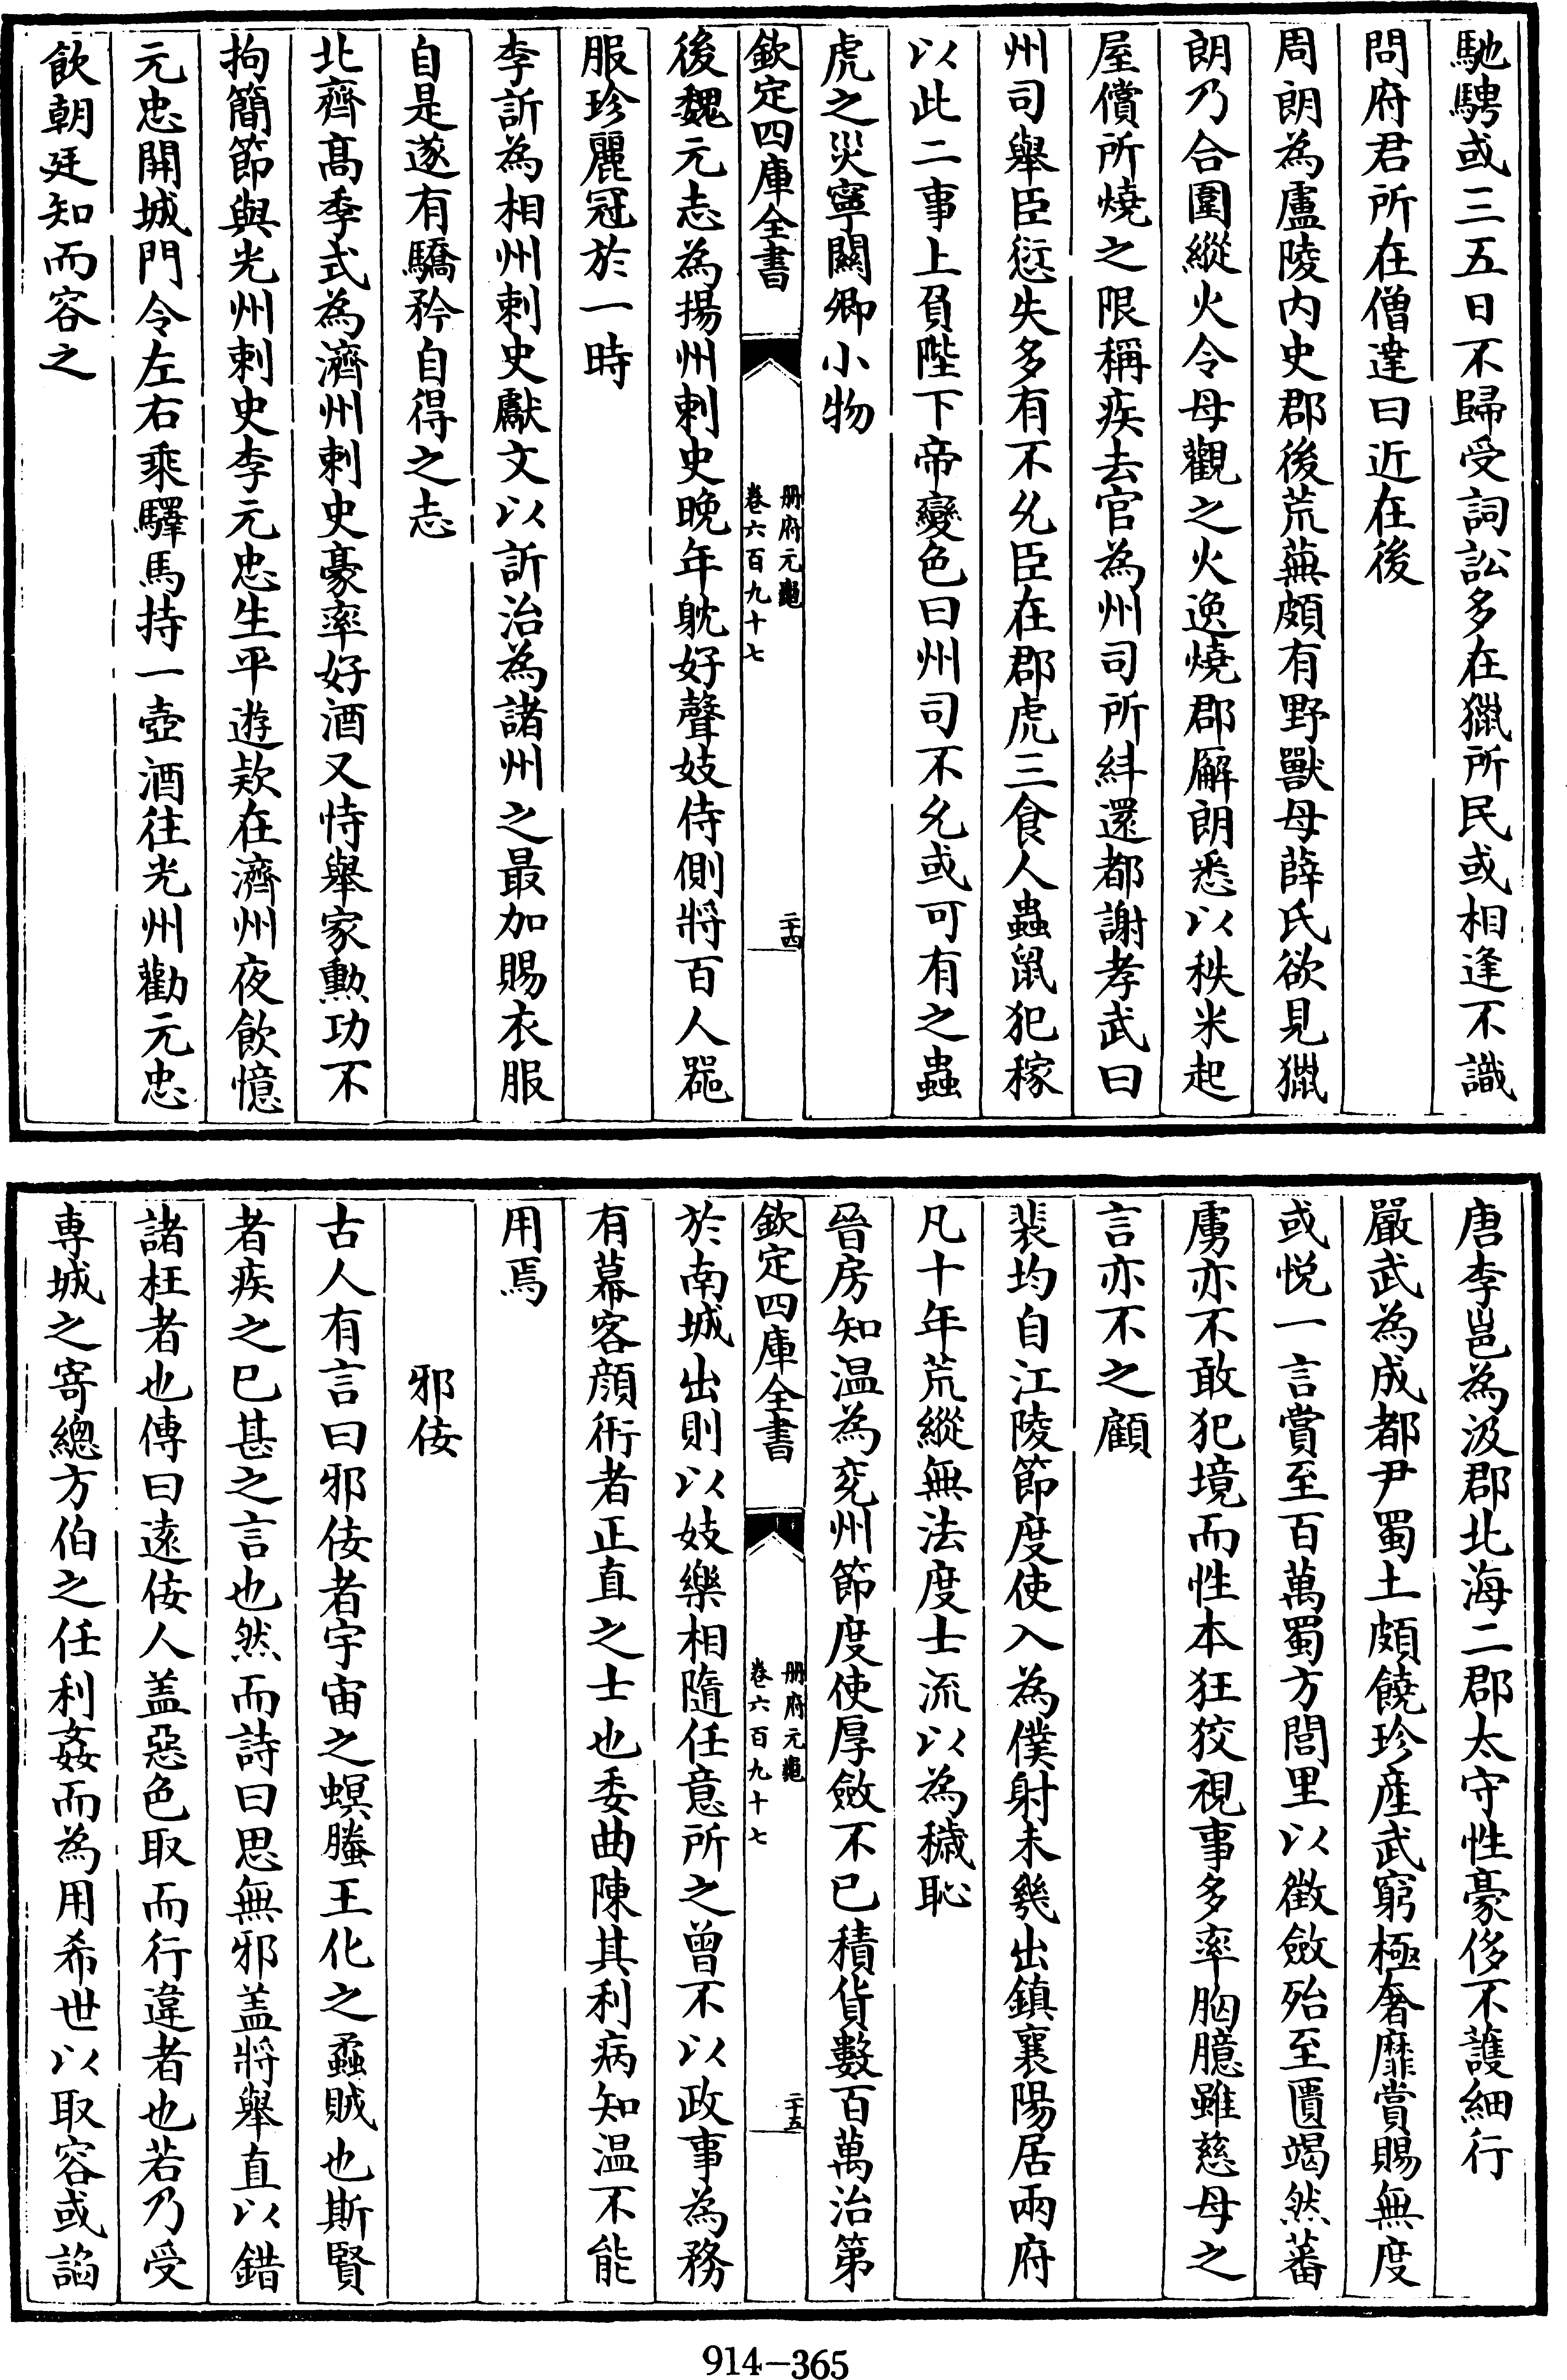 馳騁或三五日不歸受詞訟多在獵所民或相逢不識
問府君所在僧達曰近在後
周朗為廬陵内史郡後荒蕪頗有野獸母薛氏欲見獵
朗乃合圍縱火令母觀之火逸燒郡廨朗悉以秩米起
屋償所燒之限稱疾去官為州司所糾還都謝孝武曰
州司舉臣愆失多有不允臣在郡虎三食人蟲鼠犯稼
以此二事上負陛下帝變色曰州司不允或可有之蟲
虎之災寧闗卿小物
欽定四庫全書
册府元龜
卷六百九十七
二十四
後魏元志為揚州刺史晚年躭好聲妓侍側將百人器
服珍麗冠於一時
李訢為相州刺史獻文以訢治為諸州之最加賜衣服
自是遂有驕矜自得之志
北齊髙季式為濟州刺史豪率好酒又恃舉家勲功不
拘簡節與光州刺史李元忠生平遊欵在濟州夜飲憶
元忠開城門令左右乘驛馬持一壺酒往光州勸元忠
飲朝廷知而容之
唐李邕為汲郡北海二郡太守性豪侈不護細行
嚴武為成都尹蜀土頗饒珍産武窮極奢靡賞賜無度
或悦一言賞至百萬蜀方閭里以徵斂殆至匱竭然蕃
虜亦不敢犯境而性本狂狡視事多率胸臆雖慈母之
言亦不之顧
裴均自江陵節度使入為僕射未幾出鎮襄陽居兩府
凡十年荒縱無法度士流以為穢恥
晉房知温為兖州節度使厚斂不已積貨數百萬治第
欽定四庫全書
册府元龜
卷六百九十七
二十五
於南城出則以妓樂相隨任意所之曾不以政事為務
有幕客顔衎者正直之士也委曲陳其利病知温不能
用焉
邪佞
古人有言曰邪佞者宇宙之螟螣王化之蟊賊也斯賢
者疾之已甚之言也然而詩曰思無邪盖將舉直以錯
諸枉者也傳曰逺佞人盖惡色取而行違者也若乃受
専城之寄總方伯之任利姦而為用希世以取容或謟
914-365